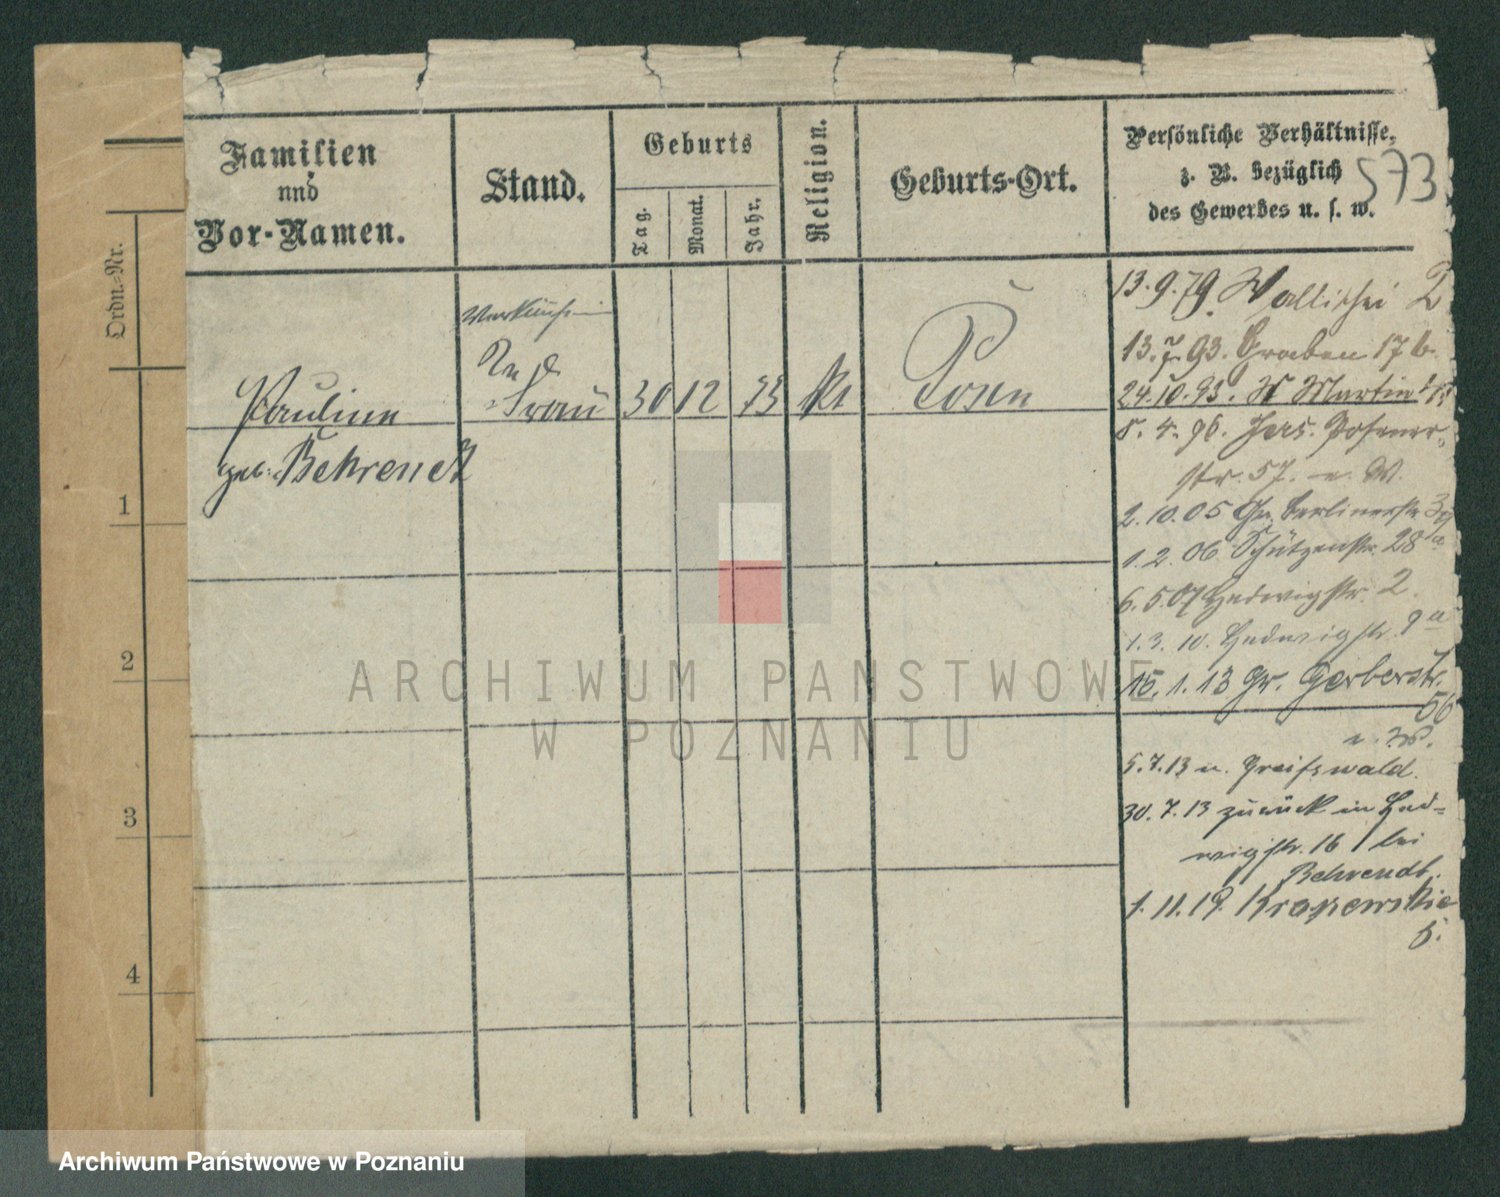 Familien
und
Vor-Namen.
Stand.
Geburts
Tag.
Monat.
Jahr.
Religion.
Geburts-Ort.
Persönliche Verhältnisse,
z. B. bezüglich
des Gewerbes u. s. w.
573
Ordn.-Nr.
1
2
3
4
Pauline
geb. Behrendt
Frau
30 12 73
Posen
13.9.79. Wallischei 2
13.7.93. Graben 17b
24.10.93. St Martin
8.4.96. Jers. Posener-
str. 57.
2.10.05 Gr. Berlinerstr
1.2.06 Schützenstr. 28a
6.5.07 Hedwigstr. 2.
1.3.10. Hedwigstr. 9a
15.1.13 Gr. Gerberstr.
56
5.7.13 n. Greifswald.
30.7.13 zurück in Hed-
wigstr. 16 bei
Behrendt.
1.11.19
5.
ARCHIWUM PANSTWOWE
W POZNANIU
Archiwum Państwowe w Poznaniu